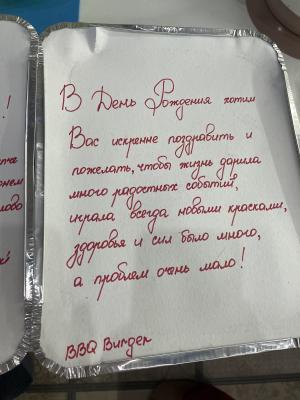 В День Рождения хотим
Вас искренне поздравить и
пожелать, чтобы жизнь дарила
много радостных событий,
играла всегда новыми красками,
здоровья и сил было много,
а проблем очень мало!
BBQ Burger